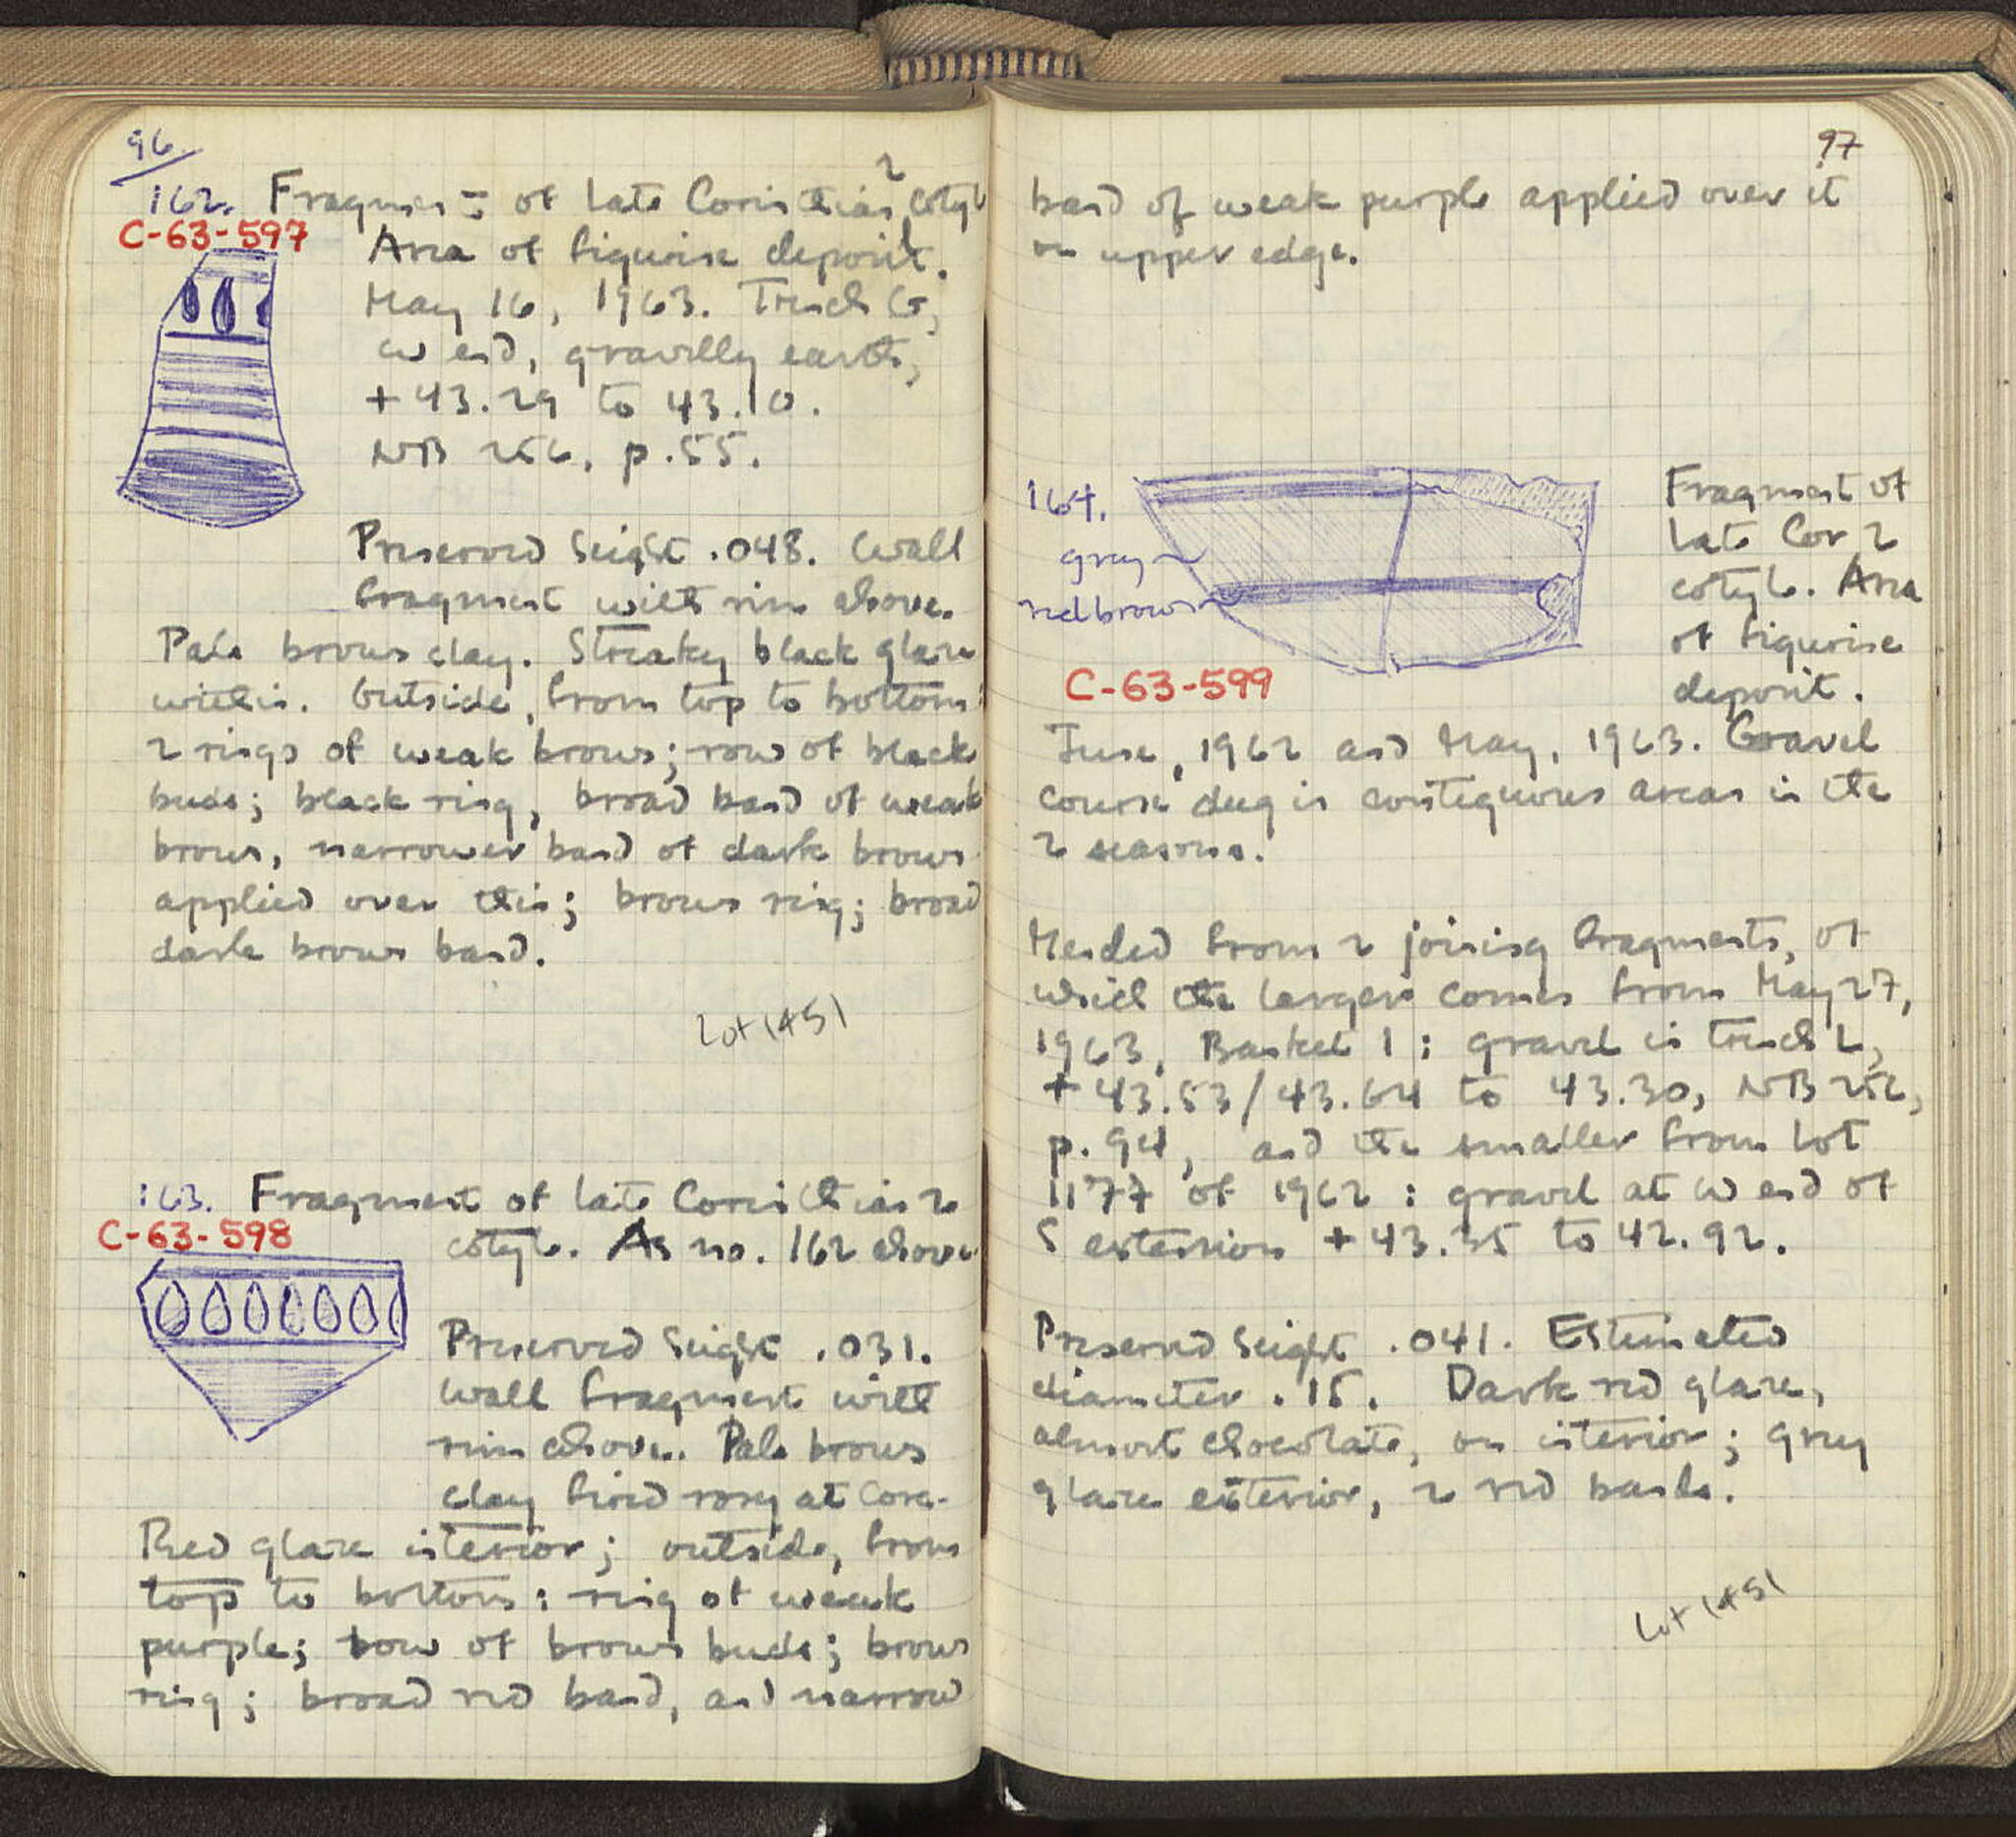 96
162. Fragment of late Corinthian 2 cotyle
C-63-597
Area of figurine deposit.
May 16, 1963. Trench G,
W end, gravelly earth,
+43.29 to 43.10.
NB 256, p.55.
Preserved height .048. Wall
fragment with rim above.
Pale brown clay. Streaky black glaze
within. Outside, from top to bottom:
2 rings of weak brown; row of black
buds; black ring, broad band of weak
brown, narrower band of dark brown
applied over this; brown ring; broad
dark brown band.
Lot 1451
163. Fragment of late Corinthian 2
C-63-598
cotyle. As no. 162 above
Preserved height .031.
Wall fragment with
rim above. Pale brown
clay fired rosy at core.
Red glaze interior; outside, from
top to bottom: ring of weak
purple; row of brown buds; brown
ring; broad red band, and narrow
97
band of weak purple applied over it
on upper edge.
164.
gray
red brown
C-63-599
Fragment of
late Cor 2
cotyle. Area
of figurine
deposit.
June, 1962 and May, 1963. Gravel
course dug in contiguous areas in the
2 seasons.
Mended from 2 joining fragments, of
which the larger comes from May 27,
1963, Basket 1: gravel in trench L,
+43.53/43.64 to 43.30, NB 252,
p. 94, and the smaller from lot
1177 of 1962: gravel at W end of
S extension +43.35 to 42.92.
Preserved height .041. Estimated
diameter .15. Dark red glaze,
almost chocolate, on interior; gray
glaze exterior, 2 red bands.
Lot 1451